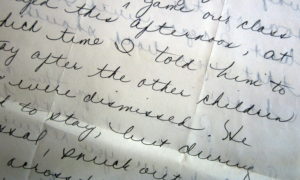 game our class
this afternoon, at
which time I told him to
after the other children
were dismissed. He
to stay, but during
snuck out
across